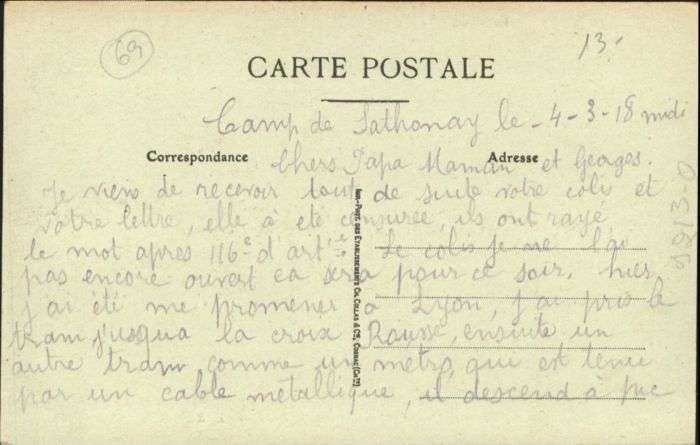 69
13.
CARTE POSTALE
Camp de Sathonay le 4-3-18 midi
Correspondance
Adresse
Chers Papa Maman et Georges.
Je viens de recevoir tout de suite votre colis et
votre lettre, elle à été censurée, ils ont rayé
le mot apres 116e d'artie. Le colis je ne l'ai
pas encore ouvert ca sera pour ce soir. hier
j'ai été me promener à Lyon, j'ai pris le
tram jusqua la croix Rousse, ensuite un
autre tram comme un métro, qui est tenu
par un cable métallique, il descend à pic
IMP.-PHOT. DES ETABLISSEMENTS CH. COLLAS & Cie, COGNAC (Chte)